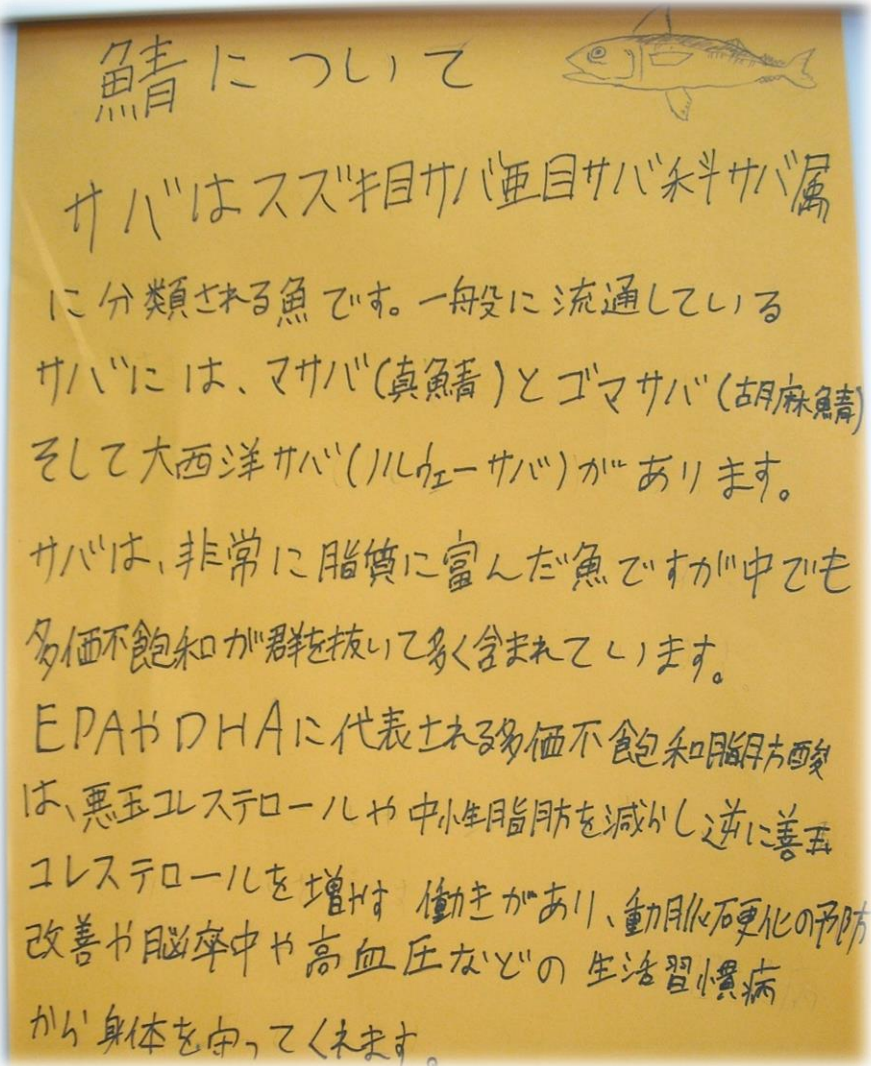 鯖について
サバはスズキ目サバ亜目サバ科サバ属
に分類される魚です。一般に流通している
サバには、マサバ(真鯖)とゴマサバ(胡麻鯖)
そして大西洋サバ(ノルウェーサバ)があります。
サバは、非常に脂質に富んだ魚ですが中でも
多価不飽和が群を抜いて多く含まれています。
EPAやDHAに代表される多価不飽和脂肪酸
は、悪玉コレステロールや中性脂肪を減らし逆に善玉
コレステロールを増やす働きがあり、動脈硬化の予防
改善や脳卒中や高血圧などの生活習慣病
から身体を守ってくれます。